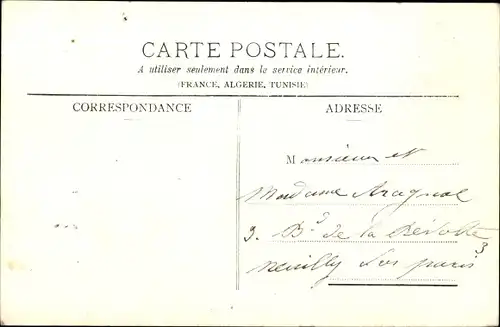 CARTE POSTALE.
A utiliser seulement dans le service intérieur.
(FRANCE, ALGERIE, TUNISIE)
CORRESPONDANCE
ADRESSE
Monsieur et
Madame
3. Bd de la Révolte
3
Neuilly sur paris